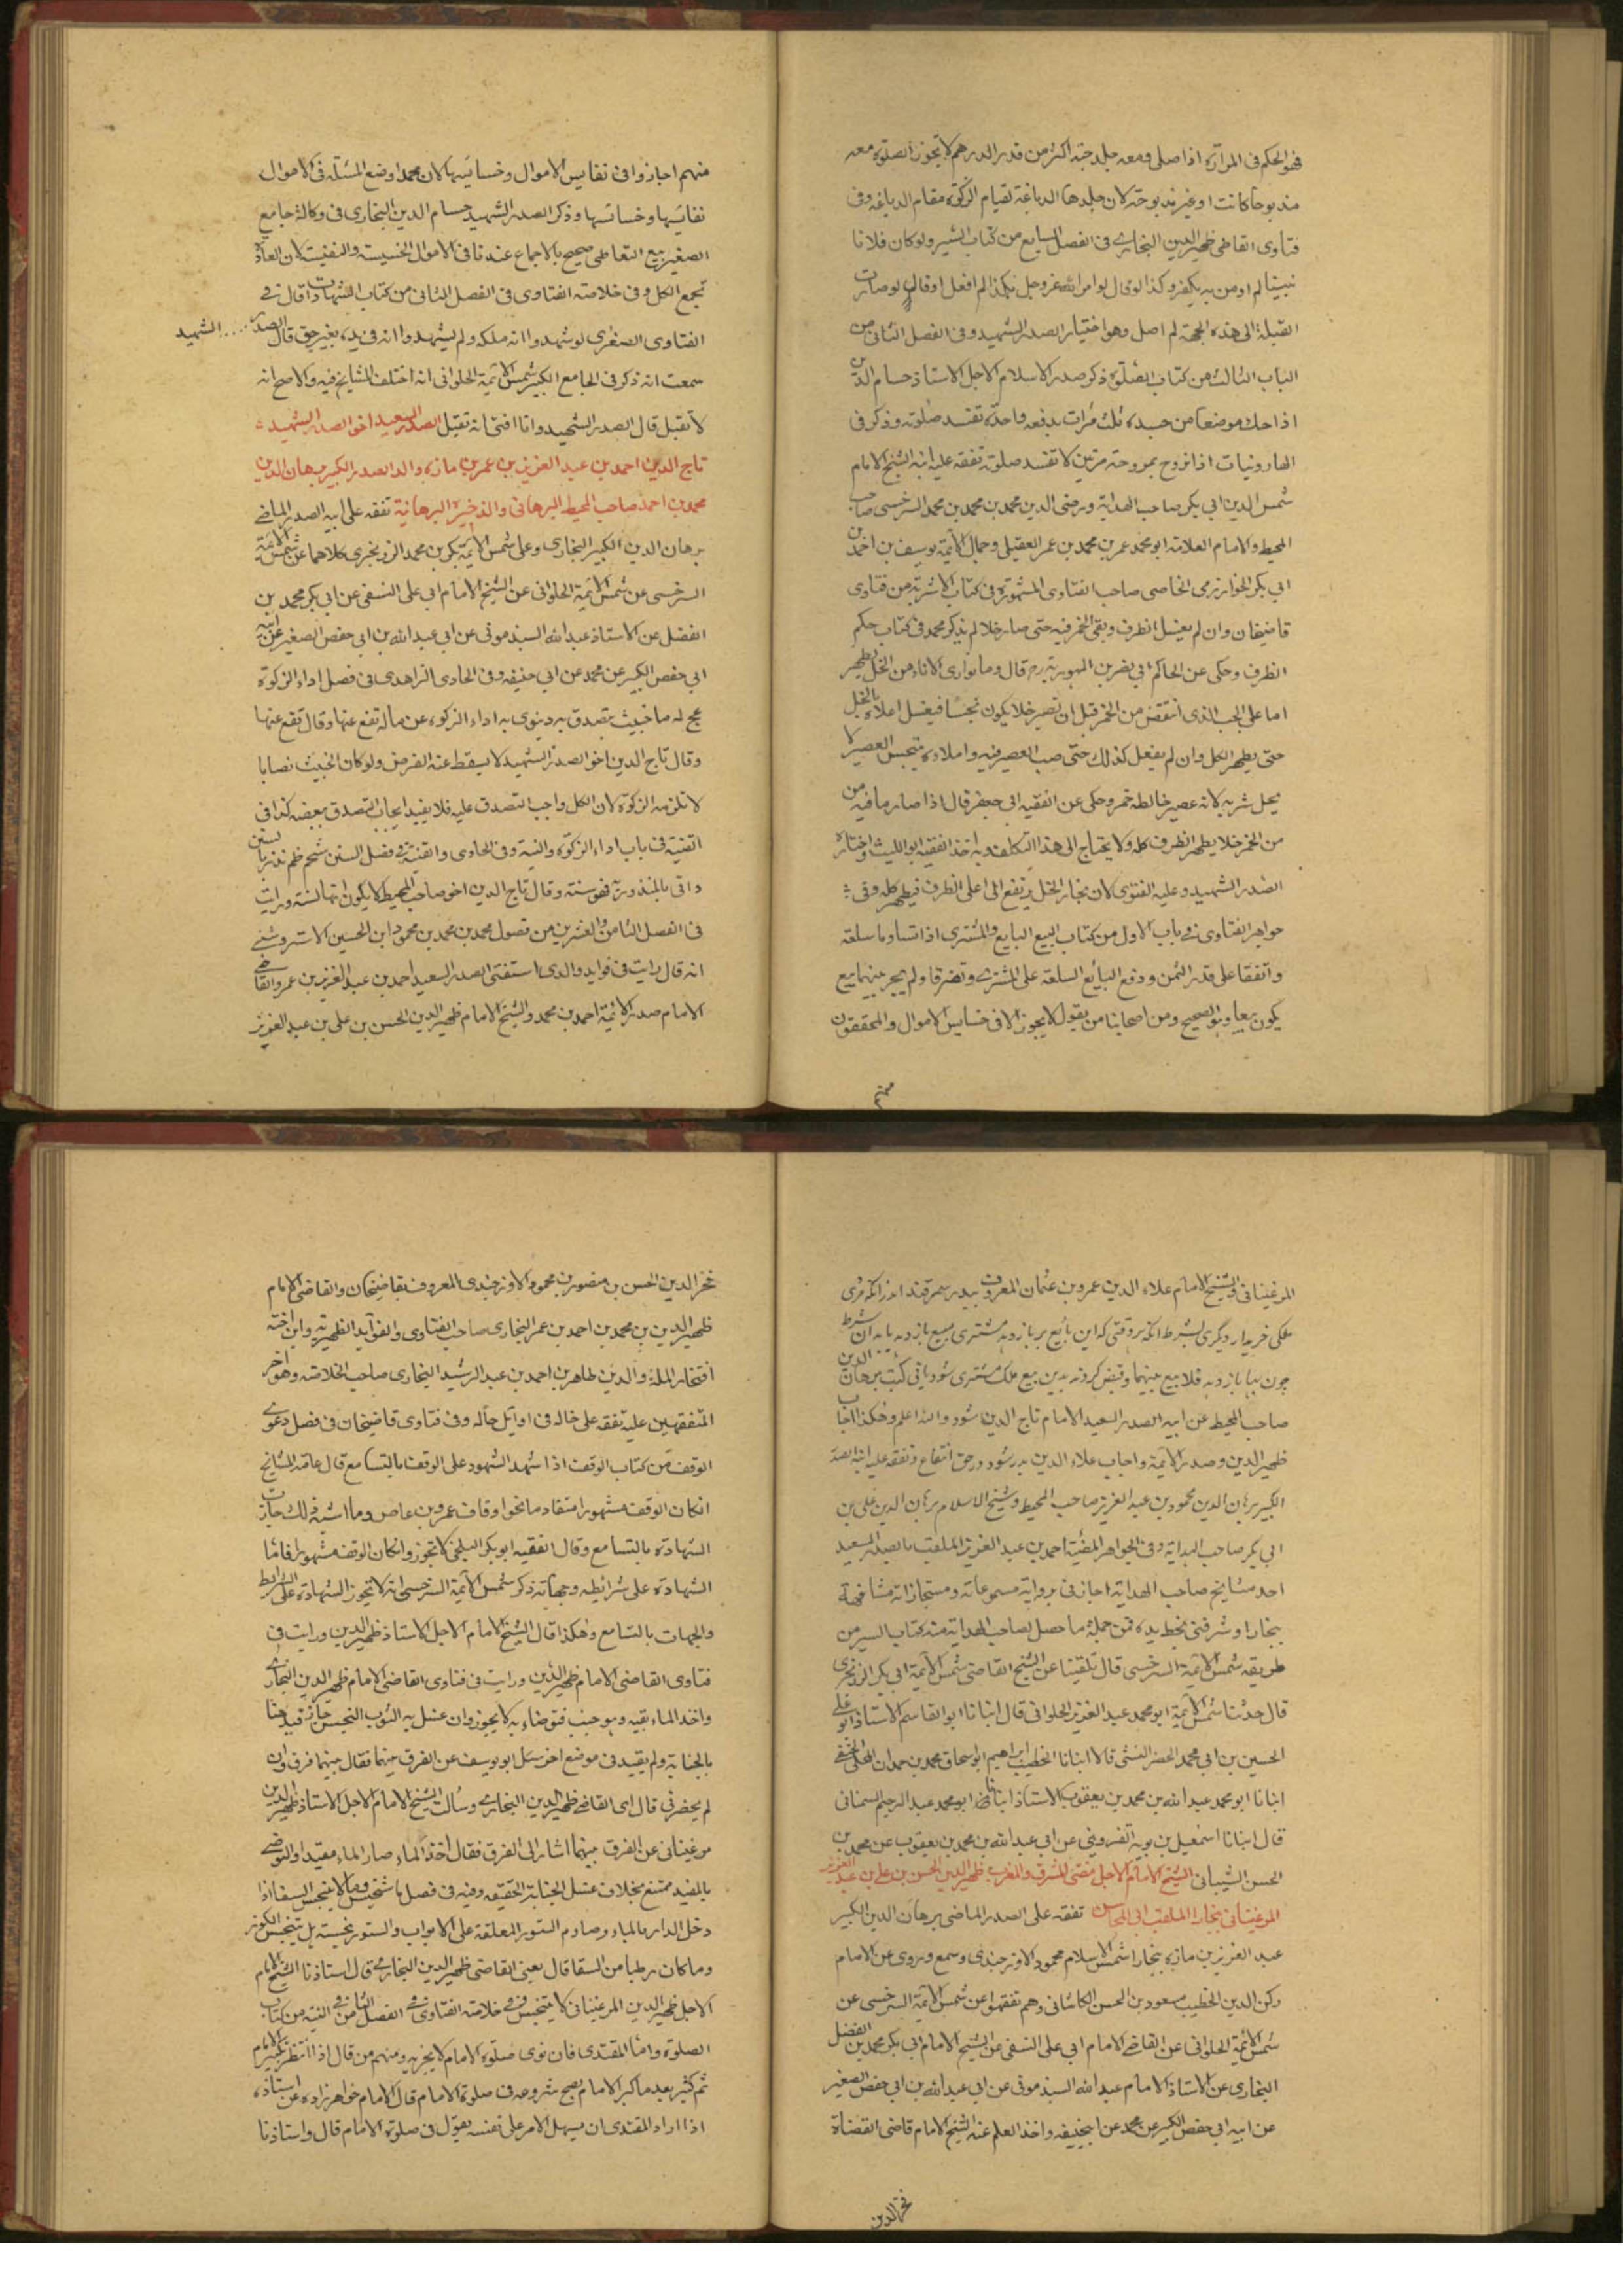 فهو الحكم فى المرآة اذا صلى ومعه جلد حية اكثر من قدر الدرهم لا تجوز الصلوة معه
مذبوحا كانت او غير مذبوحة لان جلدها الدباغة لقيام الزكوة مقام الدباغة وفى
فتاوى القاضى ظهير الدين البخارى فى الفصل السابع من كتاب السير ولو كان فلانا
نبيا لم اومن به يكفر وكذا لو قال لو امر الله عز وجل بكذا لم افعل او قال لو صارت
القبلة الى هذه الجهة لم اصل وهو اختيار الصدر الشهيد وفى الفصل الثانى من
الباب الثالث من كتاب الصلوة ذكر صدر الاسلام الاجل الاستاذ حسام الدين
اذا حك موضعا من جسده ثلث مرات بدفعة واحدة تفسد صلوته وذكر فى
الهارونيات اذا تروح بمروحة مرتين لا تفسد صلوته تفقه عليه ابنه الشيخ الامام
شمس الدين ابى بكر صاحب الهداية ورضى الدين محمد بن محمد بن محمد السرخسى صاحب
المحيط والامام العلامة ابو محمد عمر بن محمد بن عمر العقيلى وجمال الائمة يوسف بن احمد بن
ابى بكر الخوارزمى الخاصى صاحب الفتاوى المشهورة فى كتاب الاشربة من فتاوى
قاضيخان وان لم يغسل الظرف وبقى الخمر فيه حتى صار خلا لم يذكر محمد فى كتاب حكم
الظرف وحكى عن الحاكم ابى نصر بن المهرويه رح قال وما توارى الاناء من الخل يطهر
اما على الحب الذى انتقض من الخمر قبل ان تصير خلا يكون نجسا فيغسل اعلاه بالخل
حتى يطهر الكل وان لم يفعل كذلك حتى صب العصير فيه واملاءه يتنجس العصير لا
يحل شربه لانه عصير خالطه خمر وحكى عن الفقيه ابى جعفر قال اذا صار ما فيه من
من الخمر خلا يطهر الظرف كله ولا يحتاج الى هذا التكلف وبه اخذ الفقيه ابو الليث واختاره
الصدر الشهيد وعليه الفتوى لان بخار الخل يرتفع الى اعلى الظرف فيطهر كله وفى
جواهر الفتاوى فى باب الاول من كتاب البيع البايع والمشترى اذا تساوما سلعة
واتفقا على قدر الثمن ودفع البائع السلعة على المشترى وتفرقا ولم يجر بينهما بيع
يكون بيعا وهو الصحيح ومن اصحابنا من يقول لا يجوز الا فى خسايس الاموال والمحققون
منهم
منهم اجازوا فى نفايس الاموال وخسائسها لان محمدا وضع المسئلة فى الاموال
نفائسها وخسائسها وذكر الصدر الشهيد حسام الدين البخارى فى وكالة جامع
الصغير بيع التعاطى صحيح بالاجماع عندنا فى الاموال الخسيسة والنفيسة لان العادة
تجمع الكل وفى خلاصة الفتاوى فى الفصل الثانى من كتاب الشهادات قال فى
الفتاوى الصغرى لو شهدوا انه ملكه ولم يشهدوا انه فى يده بغير حق قال الصدر الشهيد
سمعت انه ذكر فى الجامع الكبير شمس الائمة الحلوانى انه اختلف المشايخ فيه والاصح انه
لا تقبل قال الصدر الشهيد وانا افتى انه تقبل الصدر السعيد اخو الصدر الشهيد
تاج الدين احمد بن عبد العزيز بن عمر بن مازه والد الصدر الكبير برهان الدين
محمد بن احمد صاحب المحيط البرهانى والذخيرة البرهانية تفقه على ابيه الصدر الماضى
برهان الدين الكبير البخارى وعلى شمس الائمة بكر بن محمد الزرنجرى كلاهما عن شمس الائمة
السرخسى عن شمس الائمة الحلوانى عن الشيخ الامام ابى على النسفى عن ابى بكر محمد بن
الفضل عن الاستاذ عبد الله السبذمونى عن ابى عبد الله بن ابى حفص الصغير عن ابيه
ابى حفص الكبير عن محمد عن ابى حنيفه وفى الحاوى الزاهدى فى فصل اداء الزكوة
عج له ما خبيث يتصدق به وينوى به اداء الزكوة عن ماله تقع عنها وقال تقع عنها
وقال تاج الدين اخو الصدر الشهيد لا يسقط عنه الفرض ولو كان الخبيث نصابا
لا تلزمه الزكوة لان الكل واجب التصدق عليه فلا يفيد ايجاب التصدق ببعضه كذا فى
القنية فى باب اداء الزكوة والنية وفى الحاوى والقنية فى فصل السنن شح ظم نذر بالسنن
واتى بالمنذور به فهو سنة وقال تاج الدين اخو صاحب المحيط لا يكون اتيا لسنة ورايت
فى الفصل الثامن والعشرين من فصول محمد بن محمد بن محمود ابن الحسين الاستروشنى
انه قال رايت فى فوايد والدى استفتى الصدر السعيد احمد بن عبد العزيز بن عمر والقاضى
الامام صدر الائمة احمد بن محمد والشيخ الامام ظهير الدين الحسن بن على بن عبد العزيز
المرغينانى والشيخ الامام علاء الدين عمرو بن عثمان المعروف
ملكى خريدار ديكرى بشرط انكه هر وقتى كه اين بايع
صاحب المحيط عن ابيه الصدر السعيد الامام تاج الدين شود والله اعلم وهكذا اجاب
ظهير الدين وصدر الائمة واجاب علاء الدين وتفقه عليه ابنه الصدر
الكبير برهان الدين محمود بن عبد العزيز صاحب المحيط وشيخ الاسلام برهان الدين على بن
ابى بكر صاحب الهداية وفى الجواهر المضية احمد بن عبد العزيز الملقب بالصدر السعيد
احد مشايخ صاحب الهداية اجاز فى رواية مسموعاته ومستجازاته مشافهة
ببخارا وشرفنى بخط يده فمن جملة ما حصل لصاحب الهداية منه كتاب السير من
طريقه شمس الائمة السرخسى قال تلقينا عن الشيخ القاضى شمس الائمة ابى بكر الزرنجرى
قال حدثنا شمس الائمة ابو محمد عبد العزيز الحلوانى قال انبانا ابو القاسم الاستاذ ابو على
الحسين بن ابى محمد الخضر النسفى قالا انبانا الخطيب ابراهيم ابو اسحاق محمد بن حمدان
انبانا ابو محمد عبد الله بن محمد بن يعقوب الاستاذ انبانا ابو محمد عبد الرحيم السمنانى
قال انبانا اسمعيل بن توبة القزوينى عن ابى عبد الله بن محمد بن يعقوب عن محمد بن
الحسن الشيبانى الشيخ الامام الاجل مفتى الشرق والمغرب ظهير الدين الحسن بن على بن عبد العزيز
المرغينانى بخارا الملقب ابى المحاسن تفقه على الصدر الماضى برهان الدين الكبير
عبد العزيز بن مازه ببخارا شمس الاسلام محمود الاوزجندى وسمع وروى عن الامام
ركن الدين الخطيب مسعود بن الحسن الكاشانى وهم تفقهوا عن شمس الائمة السرخسى عن
شمس الائمة الحلوانى عن القاضى الامام ابى على النسفى عن الشيخ الامام ابى بكر محمد بن الفضل
البخارى عن الاستاذ الامام عبد الله السبذمونى عن ابى عبد الله بن ابى حفص الصغير
عن ابيه ابى حفص الكبير عن محمد عن ابيحنيفه واخذ العلم عنه الشيخ الامام قاضى القضاة
فخر الدين
فخر الدين الحسن بن منصور بن محمود الاوزجندى المعروف بقاضيخان والقاضى الامام
ظهير الدين بن محمد بن احمد بن عمر البخارى صاحب الفتاوى والفوآيد الظهيرية وابن اخته
افتخار الملة والدين طاهر بن احمد بن عبد الرشيد البخارى صاحب الخلاصة وهو آخر
المتفقهين عليه تفقه على خاله فى اوايل حاله وفى فتاوى قاضيخان فى فصل دعوى
الوقف من كتاب الوقف اذا شهد الشهود على الوقف بالتسامع قال عامة المشايخ
ان كان الوقف مشهورا متقادما نحو اوقاف عمرو بن عاص وما اشبه ذلك جازت
الشهادة بالتسامع وقال الفقيه ابو بكر البلخى لا تجوز وان كان الوقف مشهورا فاما
الشهادة على شرائطه وجهاته ذكر شمس الائمة السرخسى انه لا تجوز الشهادة على الشرايط
والجهات بالتسامع وهكذا قال الشيخ الامام الاجل الاستاذ ظهير الدين ورايت فى
فتاوى القاضى الامام ظهير الدين ورايت فى فتاوى القاضى الامام ظهير الدين البخارى
واخذ الماء بفيه وهو جنب فتوضاء به لا يجوز وان غسل به الثوب النجس جاز قيد هنا
بالجنابة ولم يقيد فى موضع اخر سئل ابو يوسف عن الفرق بينهما فقال بينهما فرق وان
لم يحضرنى قال اى القاضى ظهير الدين البخارى وسألت الشيخ الامام الاجل الاستاذ ظهير الدين
مرغينانى عن الفرق بينهما اشار الى الفرق فقال اخذ الماء صار الماء مقيدا والتوضى
بالمقيد ممتنع بخلاف غسل الجنابة الحقيقة وفيه فى فصل ما يتنجس وما لا يتنجس السقا اذا
دخل الدار بالماء وصادم الستور المعلقة على الابواب والستور نجسة هل يتنجس الكوز
وما كان رطبا من السقا قال يعنى القاضى ظهير الدين البخارى قال استاذنا الشيخ الامام
الاجل ظهير الدين المرغينانى لا يتنجس وفى خلاصة الفتاوى فى الفصل الثامن فى النية من كتاب
الصلوة واما المقتدى فان نوى صلوة الامام لا يجزيه ومنهم من قال اذا انتظر تكبير الامام
ثم كبر بعد ما كبر الامام يصح شروعه فى صلوة الامام قال الامام خواهر زاده عن استاذه
اذا اراد المقتدى ان يسهل الامر على نفسه يقول فى صلوة الامام قال واستاذنا